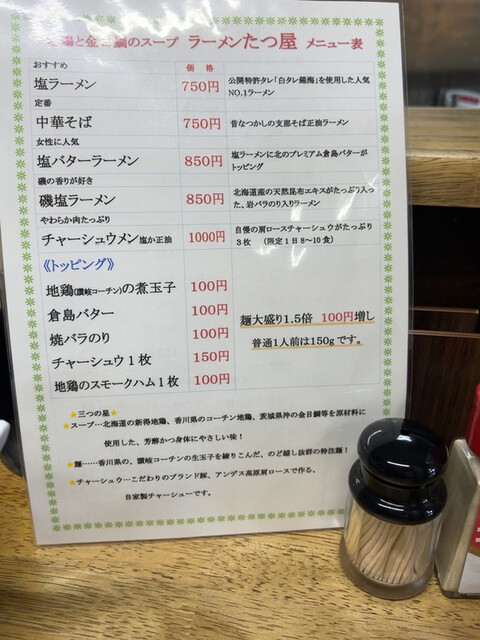 鶏と金目鯛のスープ ラーメンたつ屋 メニュー表
おすすめ 価格
塩ラーメン 750円 公開特許タレ「白タレ錦海」を使用した人気NO.1ラーメン
定番
中華そば 750円 昔なつかしの支那そば正油ラーメン
女性に人気
塩バターラーメン 850円 塩ラーメンに北のプレミアム倉島バターがトッピング
磯の香りが好き
磯塩ラーメン 850円 北海道産の天然昆布エキスがたっぷり入った、岩バラのり入りラーメン
やわらか肉たっぷり
チャーシュウメン 塩か正油 1000円 自慢の肩ロースチャーシュウがたっぷり3枚 (限定1日8~10食)
《トッピング》
地鶏(讃岐コーチン)の煮玉子 100円
倉島バター 100円
焼バラのり 100円
チャーシュウ1枚 150円
地鶏のスモークハム1枚 100円
麺大盛り1.5倍 100円増し
普通1人前は150gです。
★三つの星★
★スープ…北海道の新得地鶏、香川県のコーチン地鶏、茨城県沖の金目鯛等を原材料に
使用した、芳醇かつ身体にやさしい味!
★麺……香川県の、讃岐コーチンの生玉子を練りこんだ、のど越し抜群の特注麺!
★チャーシュウ…こだわりのブランド豚、アンデス高原肩ロースで作る、
自家製チャーシューです。